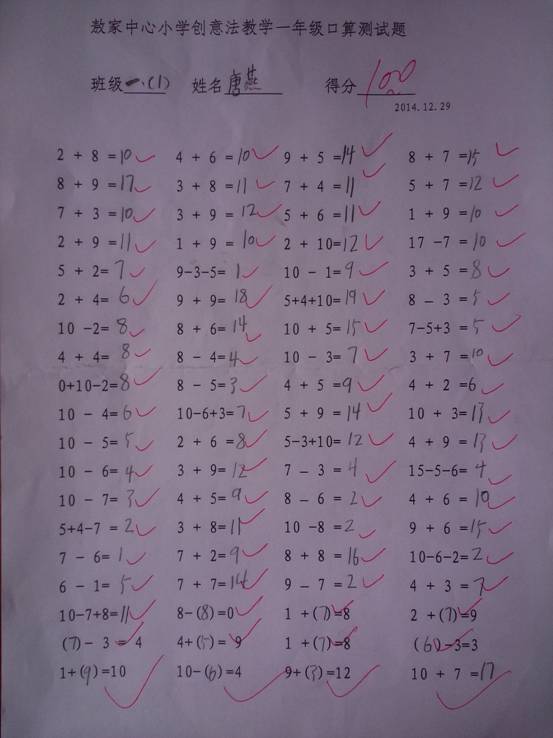 敖家中心小学创意法教学一年级口算测试题
班级一.(1) 姓名唐燕 得分100
2014.12.29
2 + 8 =10 4 + 6 =10 9 + 5 =14 8 + 7 =15
8 + 9 =17 3 + 8 =11 7 + 4 =11 5 + 7 =12
7 + 3 =10 3 + 9 =12 5 + 6 =11 1 + 9 =10
2 + 9 =11 1 + 9 =10 2 + 10=12 17 -7 =10
5 + 2=7 9-3-5=1 10 - 1=9 3 + 5 =8
2 + 4=6 9 + 9=18 5+4+10=19 8 - 3 =5
10 -2=8 8 + 6=14 10 + 5=15 7-5+3 =5
4 + 4=8 8 - 4=4 10 - 3=7 3 + 7 =10
0+10-2=8 8 - 5=3 4 + 5 =9 4 + 2 =6
10 - 4=6 10-6+3=7 5 + 9 =14 10 + 3=13
10 - 5=5 2 + 6 =8 5-3+10=12 4 + 9 =13
10 - 6=4 3 + 9=12 7 - 3 =4 15-5-6=4
10 - 7=3 4 + 5=9 8 - 6 =2 4 + 6 =10
5+4-7 =2 3 + 8=11 10 -8 =2 9 + 6 =15
7 - 6=1 7 + 2=9 8 + 8 =16 10-6-2=2
6 - 1=5 7 + 7=14 9 - 7 =2 4 + 3 =7
10-7+8=11 8-(8)=0 1 +(7)=8 2 +(7)=9
(7)- 3 = 4 4+(5)= 9 1 +(7)=8 (6)-3=3
1+(9)=10 10-(6)=4 9+(3)=12 10 + 7 =17